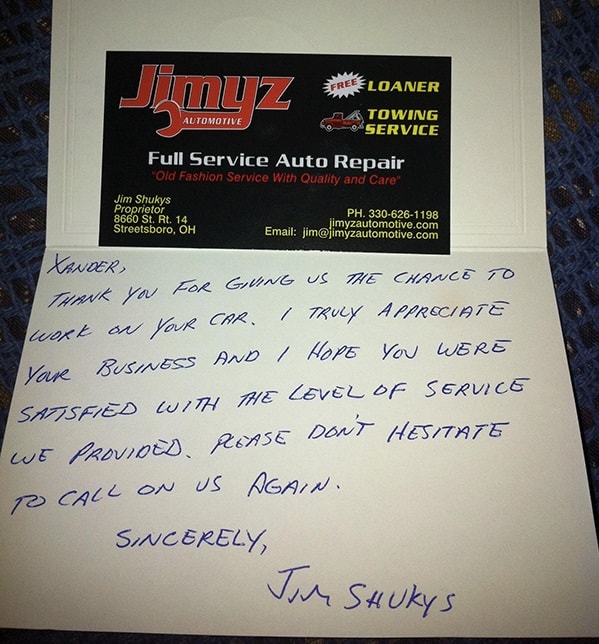 Jimyz
AUTOMOTIVE
FREE LOANER
TOWING
SERVICE
Full Service Auto Repair
"Old Fashion Service With Quality and Care"
Jim Shukys
Proprietor
8660 St. Rt. 14
Streetsboro, OH
PH. 330-626-1198
jimyzautomotive.com
Email: jim@jimyzautomotive.com
XANDER,
THANK YOU FOR GIVING US THE CHANCE TO
WORK ON YOUR CAR. I TRULY APPRECIATE
YOUR BUSINESS AND I HOPE YOU WERE
SATISFIED WITH THE LEVEL OF SERVICE
WE PROVIDED. PLEASE DON'T HESITATE
TO CALL ON US AGAIN.
SINCERELY,
JIM SHUKYS